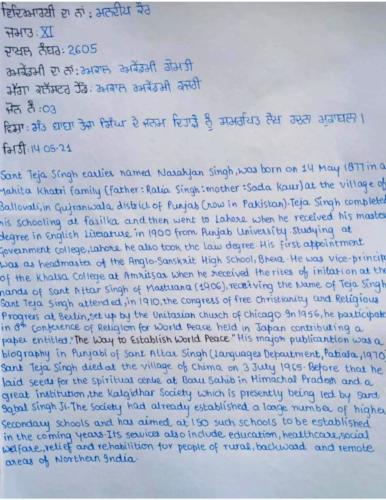 ਵਿਦਿਆਰਥੀ ਦਾ ਨਾਂ: ਮਨਦੀਪ ਕੌਰ
ਜਮਾਤ: XI
ਦਾਖਲ ਨੰਬਰ: 2605
ਅਕੈਡਮੀ ਦਾ ਨਾਂ: ਅਕਾਲ ਅਕੈਡਮੀ ਗੋਮਤੀ
ਮੱਗਾ ਕਲੱਸਟਰ ਹੈੱਡ: ਅਕਾਲ ਅਕੈਡਮੀ ਕਜਰੀ
ਜੋਨ ਨੰ: 03
ਵਿਸ਼ਾ: ਸੰਤ ਬਾਬਾ ਤੇਜਾ ਸਿੰਘ ਦੇ ਜਨਮ ਦਿਹਾੜੇ ਨੂੰ ਸਮਰਪਿਤ ਲੇਖ ਰਚਨਾ ਮੁਕਾਬਲਾ।
ਮਿਤੀ: 14-05-21
Sant Teja Singh earlier named Naranjan Singh, was born on 14 May 1877 in a
Mahita Khatri family (father: Ralia Singh: mother: Sada Kaur) at the village of
Ballovali, in Gujranwala, district of Punjab (now in Pakistan). Teja Singh complete
his schooling at fazilka and then went to Lahore when he received his master
degree in English Literature in 1900 from Punjab University. Studying at
Government college, Lahore he also took the law degree. His first appointment
was as headmaster of the Anglo-Sanskrit High School, Bhera. He was vice-princip
of the Khalsa College at Amritsar when he received the rites of initation at the
hands of Sant Attar Singh of Mastuana (1906), receiving the Name of Teja Singh
Sant Teja Singh attended, in 1910, the congress of free Christianity and Religious
Progress at Berlin, set up by the Unitarian Church of Chicago. In 1956, he participate
in 8th Conference of Religion for World Peace held in Japan contributing a
paper entitled: "The Way to Establish World Peace." His major publication was a
biography in Punjabi of Sant Attar Singh (Languages Department, Patiala, 1970
Sant Teja Singh died at the village of Chima on 3 July 1965. Before that he
laid seeds for the spiritual centre at Baru Sahib in Himachal Pradesh and a
great institution, the Kalgidhar Society which is presently being led by Sant
Iqbal Singh Ji. The Society had already established a large number of higher
Secondary schools and has aimed at 150 such schools to be established
in the coming years. Its services also include education, healthcare, social
welfare, relief and rehabilition for people of rural, backward and remote
areas of Northern India.